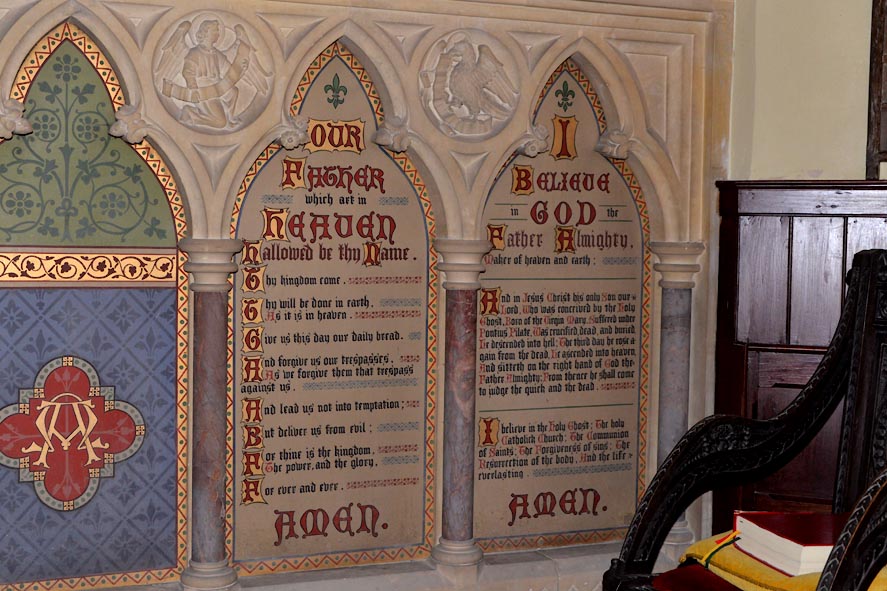 OUR
FATHER
which art in
HEAVEN
Hallowed be thy Name.
Thy kingdom come.
Thy will be done in earth,
As it is in heaven.
Give us this day our daily bread.
And forgive us our trespasses,
As we forgive them that trespass
against us.
And lead us not into temptation;
But deliver us from evil:
For thine is the kingdom,
The power, and the glory,
For ever and ever.
AMEN.
I
BELIEVE
in GOD the
Father Almighty,
Maker of heaven and earth:
And in Jesus Christ his only Son our
Lord, Who was conceived by the Holy
Ghost, Born of the Virgin Mary, Suffered under
Pontius Pilate, Was crucified, dead, and buried,
He descended into hell; The third day he rose a
gain from the dead, He ascended into heaven,
And sitteth on the right hand of God the
Father Almighty; From thence he shall come
to judge the quick and the dead.
I believe in the Holy Ghost; The holy
Catholick Church; The Communion
of Saints; The Forgiveness of sins; The
Resurrection of the body, And the life
everlasting.
AMEN.